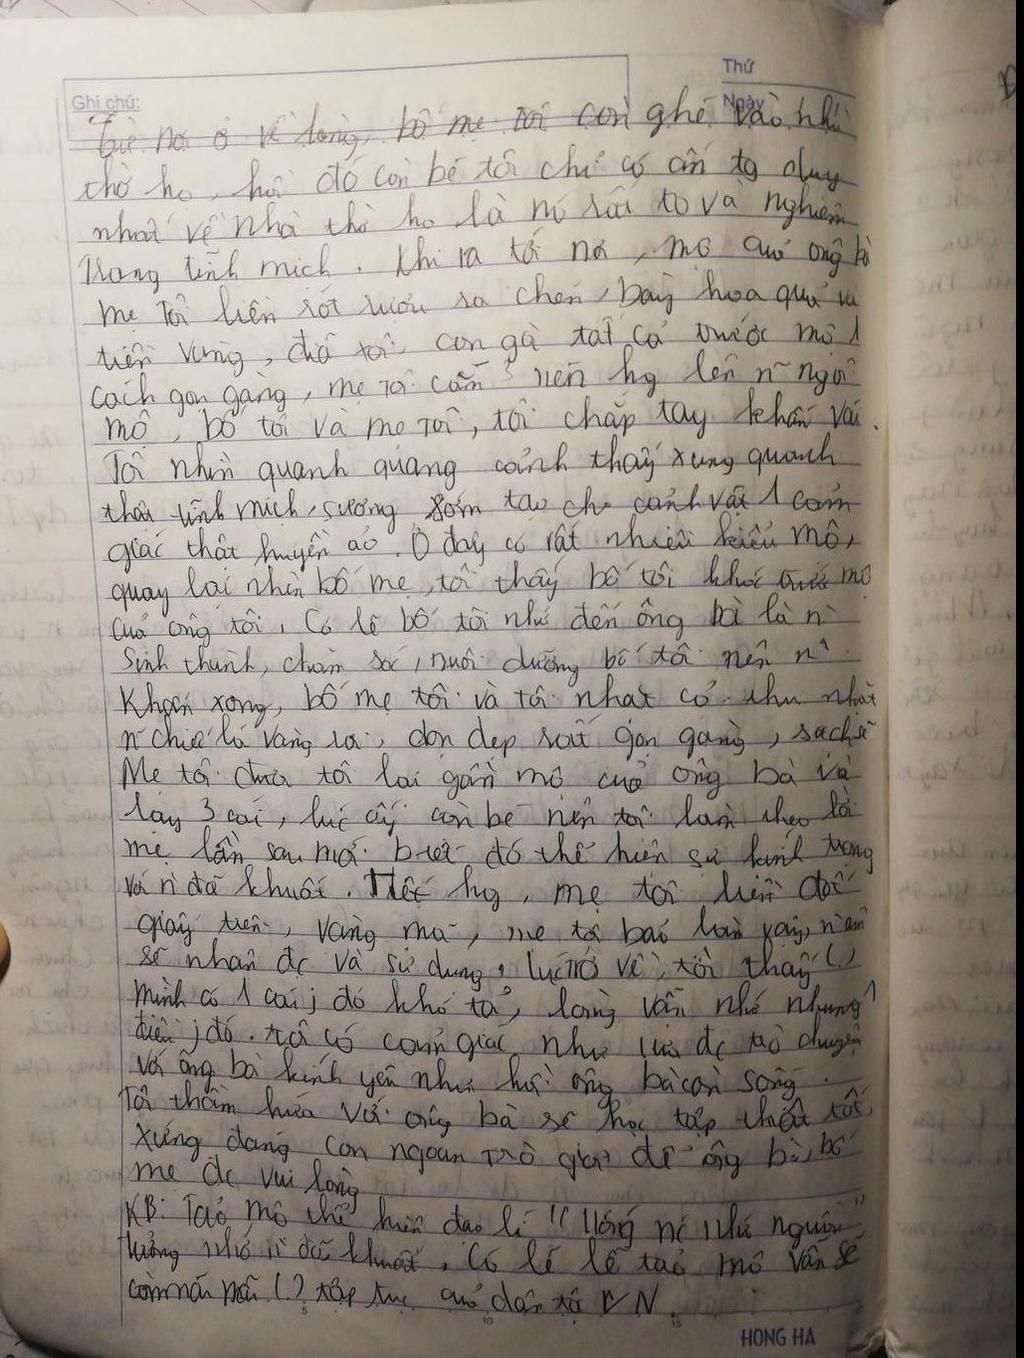 Thứ
Ghi chú:
Ngày
Từ nơi ở về làng, bố mẹ tôi còn ghé vào nhà
thờ họ, hồi đó còn bé tôi chỉ có ấn tg duy
nhất về nhà thờ họ là nó rất to và nghiêm
trang tĩnh mịch. Khi ra tới nơi, mộ quá ông bà
mẹ tôi liền rót rượu ra chén, bày hoa quả và
tiền vàng, đĩa xôi, con gà tất cả trước mộ 1
cách gọn gàng, mẹ tôi cắm nén hg lên n~ ngôi
mộ, bố tôi và mẹ tôi, tôi chắp tay khấn vái.
Tôi nhìn quanh quang cảnh thấy xung quanh
thật tĩnh mịch, sương sớm tạo cho cảnh vật 1 cảm
giác thật huyền ảo. Ở đây có rất nhiều kiểu mộ,
quay lại nhìn bố mẹ, tôi thấy bố tôi khóc trước mộ
của ông tôi. Có lẽ bố tôi nhớ đến ông bà là n~
sinh thành, chăm sóc, nuôi dưỡng bố tôi nên n~
Khấn xong, bố mẹ tôi và tôi nhặt cỏ thu nhặt
n~ chiếc lá vàng rơi, dọn dẹp rất gọn gàng, sạch sẽ
Mẹ tôi đưa tôi lại gần mộ của ông bà và
lạy 3 cái, lúc ấy còn bé nên tôi làm theo lời
mẹ lần sau mới biết đó thể hiện sự kính trọng
với n` đã khuất. Hết hg, mẹ tôi liền đốt
giấy tiền, vàng mã, mẹ tôi bảo làm vậy n` âm
sẽ nhận đc và sử dụng. Lúc trở về, tôi thấy (.)
mình có 1 cái j đó khó tả, lòng vẫn nhớ nhung 1
điều j đó. Tôi có cảm giác như vừa đc trò chuyện
với ông bà kính yêu như hồi ông bà còn sống.
Tôi thầm hứa với ông bà sẽ học tập thật tốt,
xứng đáng con ngoan trò giỏi để ông bà, bố
mẹ đc vui lòng
KB: Tảo mộ thể hiện đạo lí "Uống nc nhớ nguồn"
tưởng nhớ n` đã khuất. Có lẽ lễ tảo mộ vẫn sẽ
còn mãi mãi (.) tập tục của dân tộc VN.
5 10 15
HONG HA